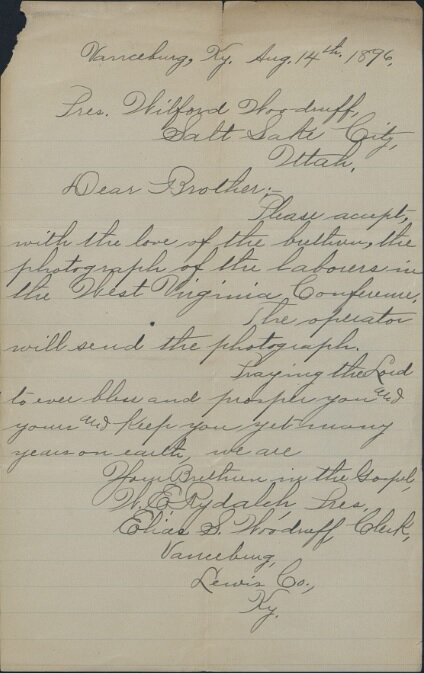 Vanceburg, Ky. Aug. 14th, 1896.
Pres. Wilford Woodruff,
Salt Lake City,
Utah.
Dear Brother:-
Please accept,
with the love of the brethren, the
photograph of the laborers in
the West Virginia Conference.
The operator
will send the photograph.
Praying the Lord
to ever bless and prosper you and
yours and keep you yet many
years on earth, we are
Your Brethren in the Gospel,
W. E. Rydalch, Pres.
Elias S. Woodruff, Clerk,
Vanceburg,
Lewis Co.,
Ky.